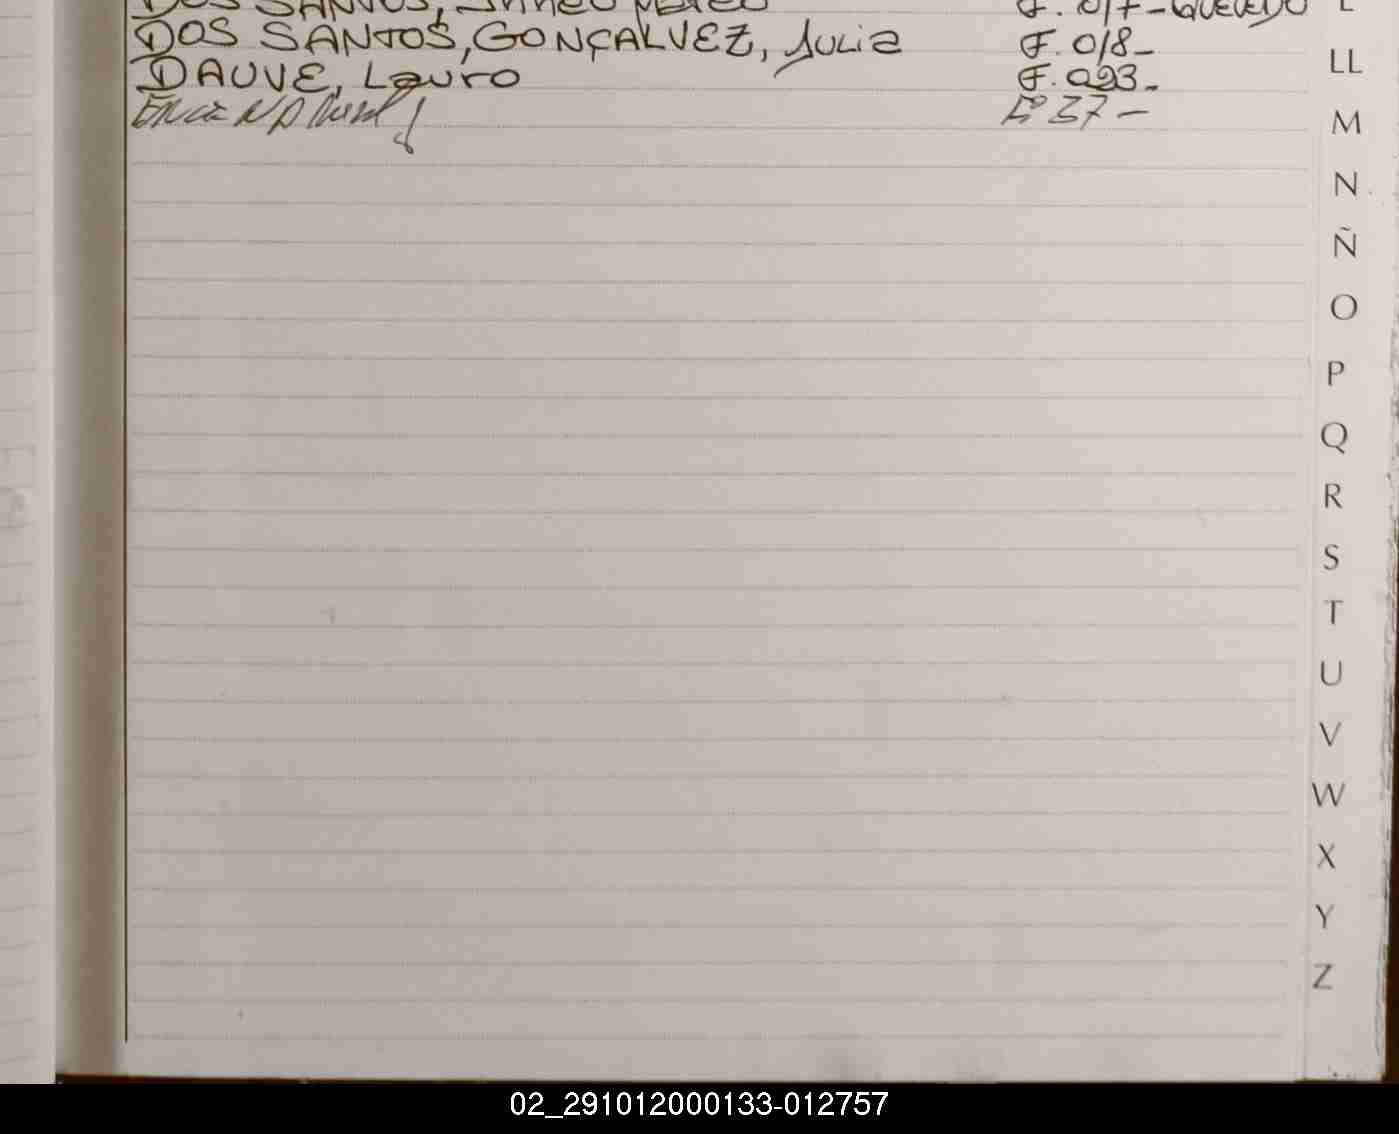 DOS SANTOS, F. 017 - QUEVEDO L
DOS SANTOS, GONÇALVEZ, Julia F. 018 -
LL
DAUVE, Lauro F. 023 -
Fº 37 - M
N
Ñ
O
P
Q
R
S
T
U
V
W
X
Y
Z
02_291012000133-012757